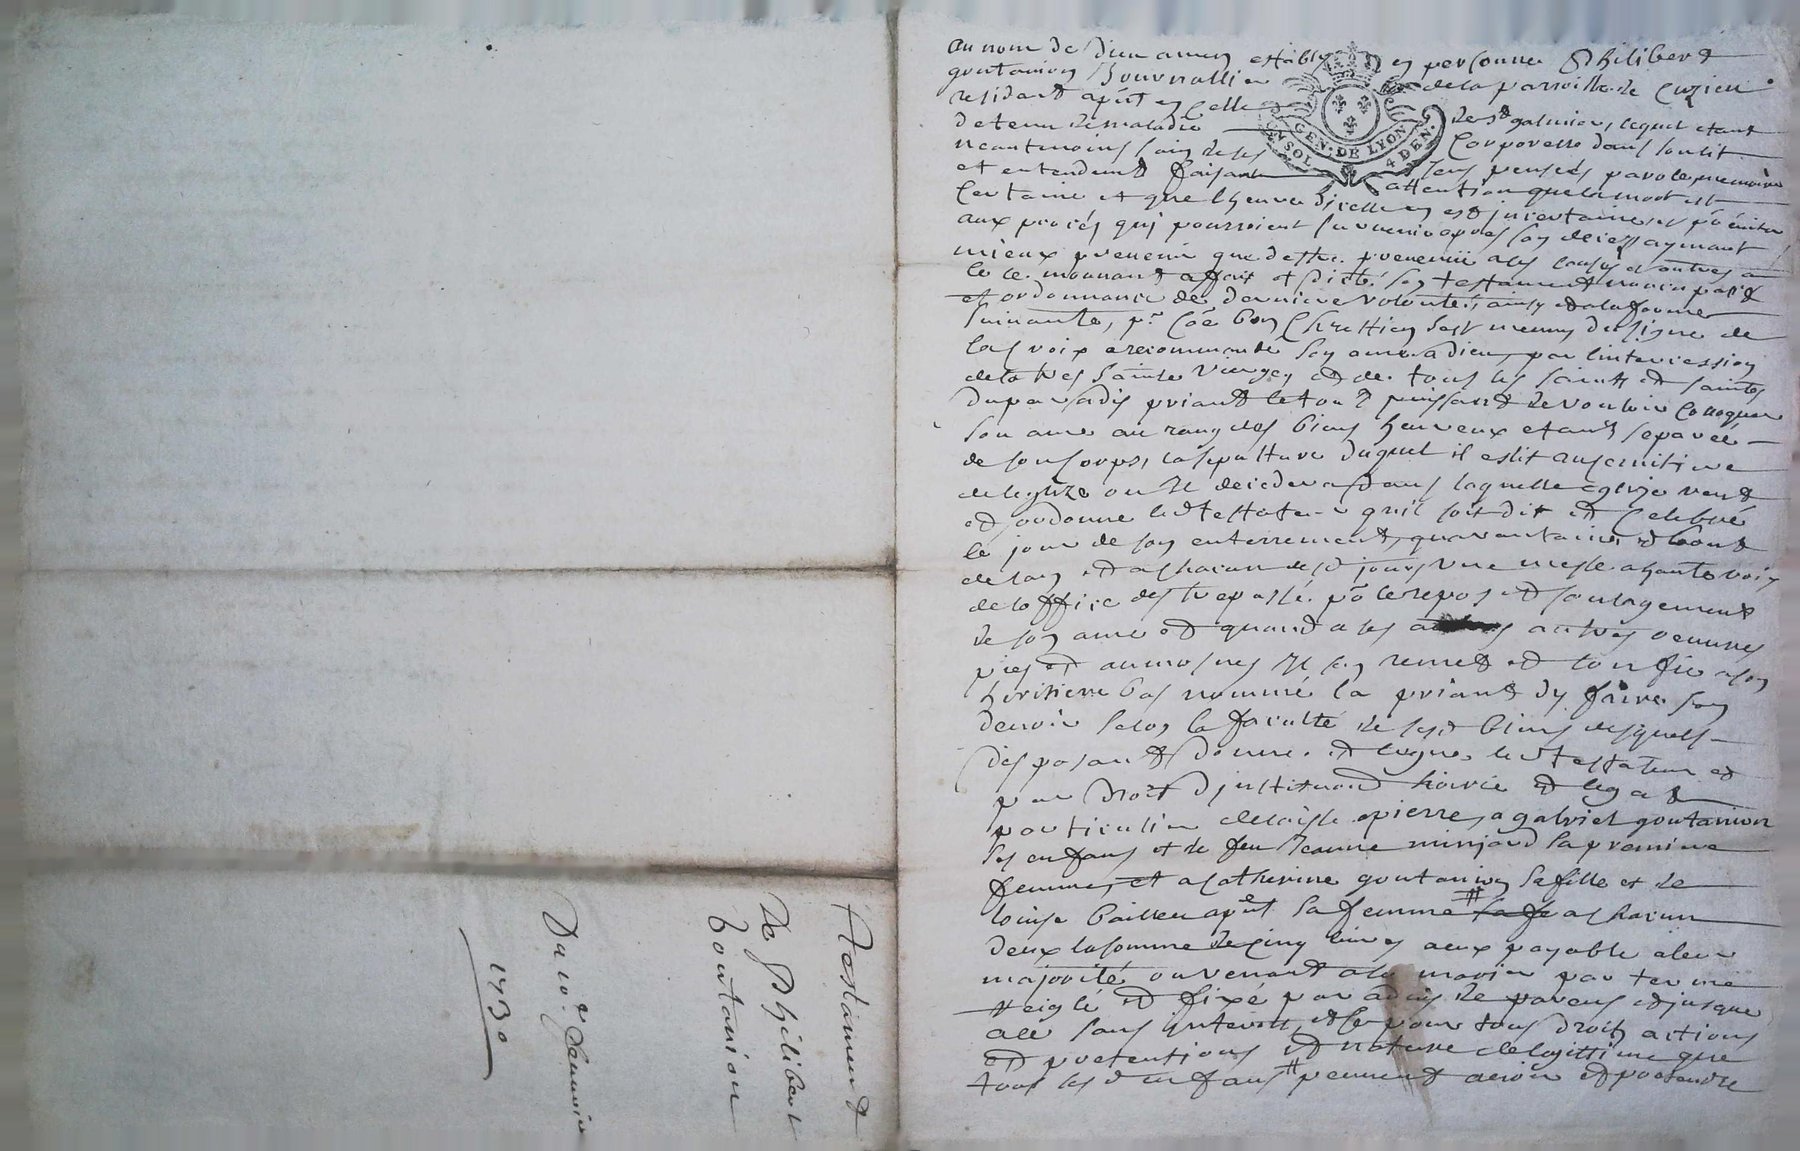 au nom de Dieu amen establi en personne Philibert
goutanion Journallier de la parroisse de Cuzieu
residant apñt en celle de St galmier, lequel etant
detenu de maladie Corporelle dans son lit
neantmoins sain de ses sens pensées parole memoire
et entendement faisant attention que la mort est
Certaine et que lheure dicelle en est jncertaine et pō éviter
aux procés quj pourroient survenir apres son deceds aymant
mieux prevenir que destre prevenü a ces causes et autres a
le ce mouvant a fait et dicté son testament
et ordonnance de derniere volonté, ainsy et a la forme
suivante, pr. Coē bon Chrettien sest meuny du signe de
la Croix a recommandé son ame a dieu, par lintercession
de la tres sainte Vierge, et de tous les saints et saintes
du paradis priant le tout puissant de vouloir Colloquer
son ame au rang des biens heureux etant separée
de son corps, la sepulture duquel il eslit au semitiere
de leglize ou Il decedera dans laquelle eglize veut
et ordonne led testateur quil soit dit et Celebré
le jour de son enterrement, quarantaine et bout
de lan et a chacun desd jours une messe a haute voix
de loffice des trepassé pō le repos et soulagement
de son ame et quand a ses autres oeuvres
pies et aumosnes Il sen remet et confie a son
heritiere bas nommé la priant dy faire son
devoir selon la faculté de sesd biens desquels
disposant donne et legue led testateur et
par droit djnstitution hoirie et legat
particulier delaisse a pierre, a gabriel goutanion
ses enfans et de feu Jeanne minjard sa premiere
femme, et a Catherine goutanion sa fille et de
louise bailleu apñt sa femme # a chacun
deux la somme de cinq livres a eux payable a leur
majorité ou venant a se marier par terme
reiglé et fixé par advis de parens et jusque
a ce sans jnterest, et ce pour tous droits actions
et pretentions et nature de legittime que
tous lesd enfans # peuvent avoir et pretendre
Testament
De Philibert
Goutanion
Du 10e Janvier
1730
GEN. DE LYON
UN SOL
4 DEN.